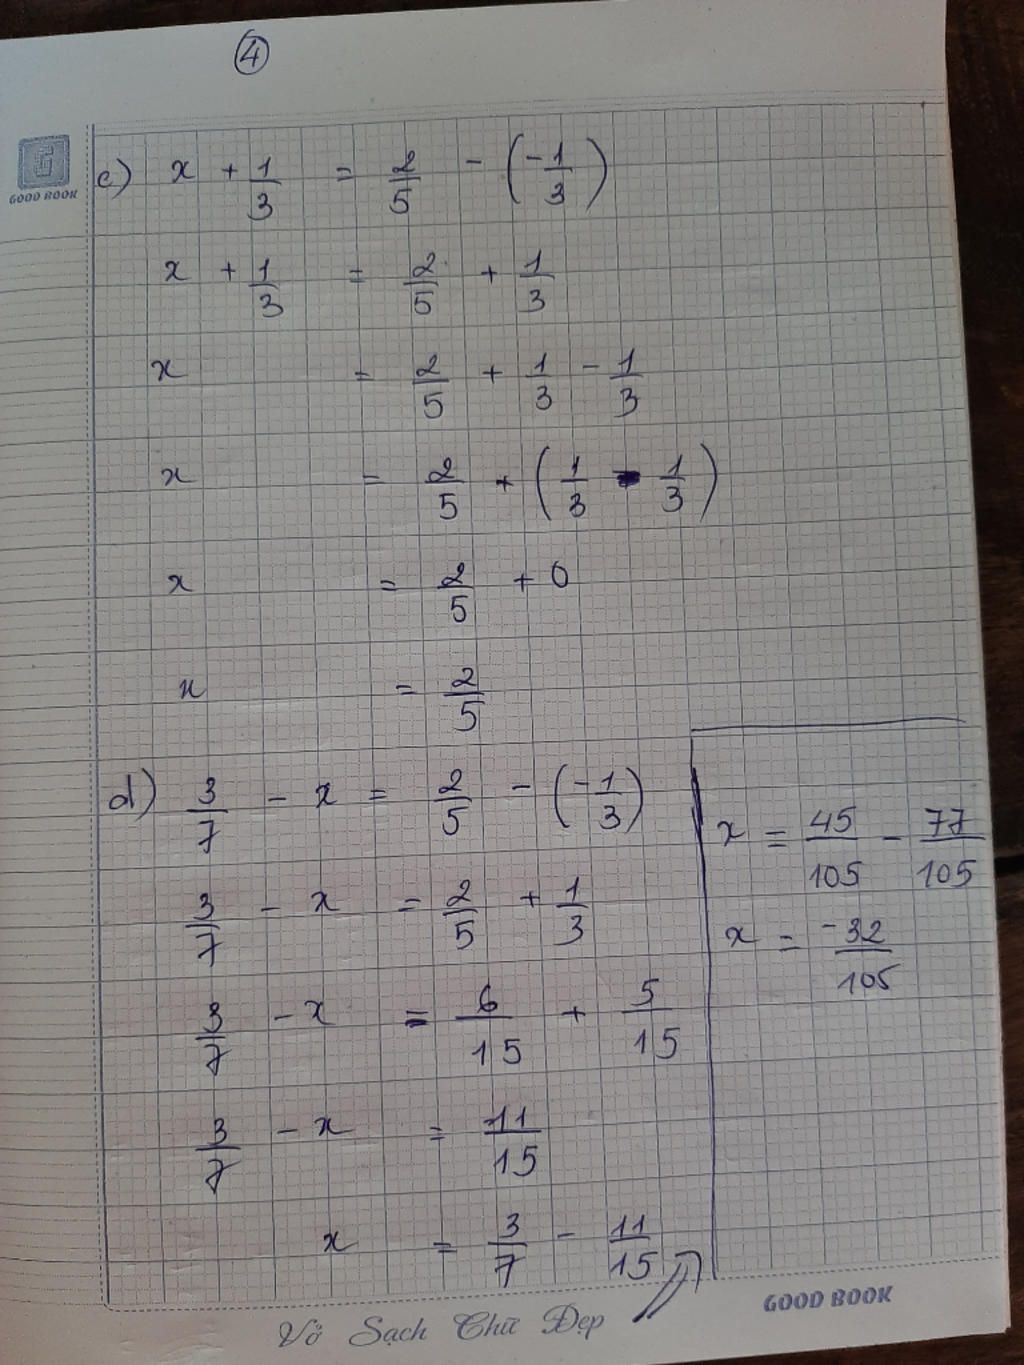 4
G
GOOD BOOK
c) x + 1/3 = 2/5 - (-1/3)
x + 1/3 = 2/5 + 1/3
x = 2/5 + 1/3 - 1/3
x = 2/5 + (1/3 - 1/3)
x = 2/5 + 0
x = 2/5
d) 3/7 - x = 2/5 - (-1/3)
3/7 - x = 2/5 + 1/3
3/7 - x = 6/15 + 5/15
3/7 - x = 11/15
x = 3/7 - 11/15
x = 45/105 - 77/105
x = -32/105
Vở Sạch Chữ Đẹp
GOOD BOOK